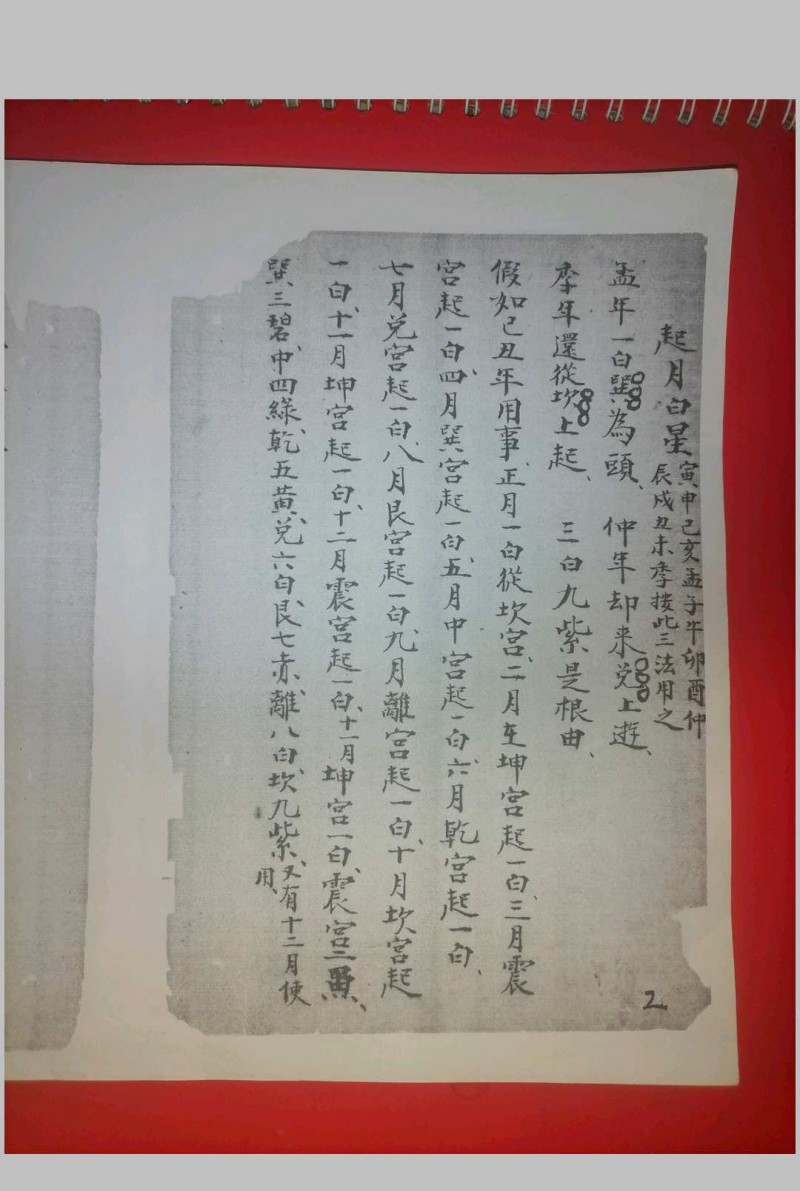 起月白星
寅申己亥孟子午卯酉仲
辰戌丑未季接此三法用之
孟年一白巽為頭、仲年却来兑上遊、
季年還從坎上起、三白九紫是根由、
假如己丑年用事、正月一白從坎宮、二月在坤宮起一白、三月震
宮起一白、四月巽宮起一白、五月中宮起一白、六月乾宮起一白、
七月兑宮起一白、八月艮宮起一白、九月離宮起一白、十月坎宮起
一白、十一月坤宮起一白、十二月震宮起一白、十一月坤宮一白、震宮二黒、
巽三碧、中四綠、乾五黃、兑六白、艮七赤、離八白、坎九紫、又有十二月使
用、
2